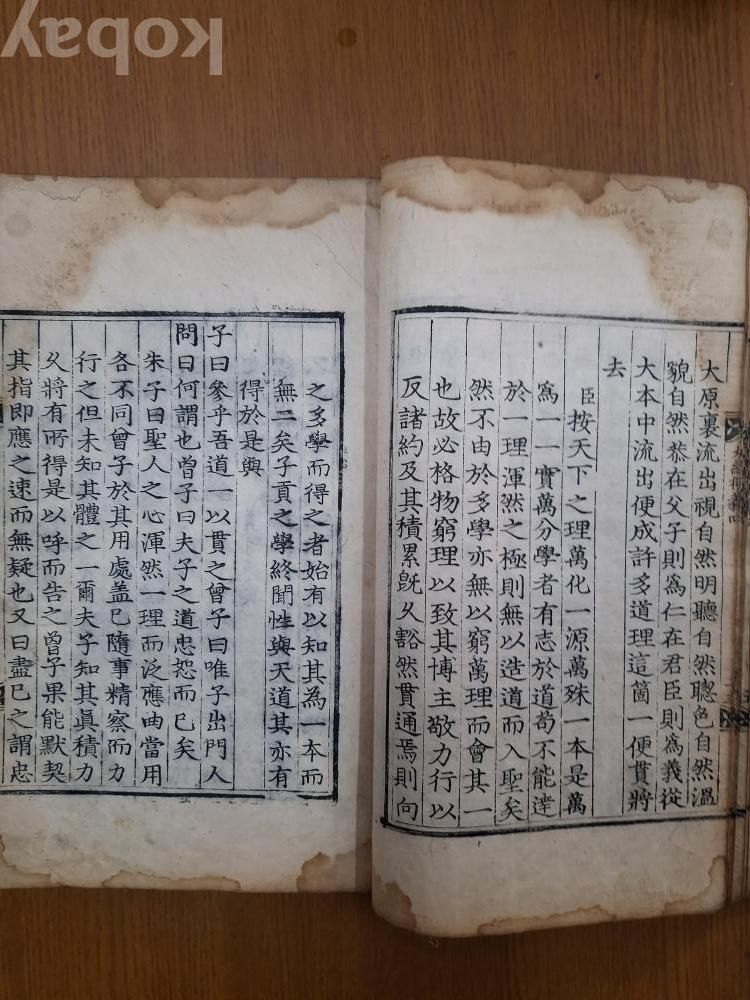 kobay
大原裏流出視自然明聽自然聰色自然溫
貌自然恭在父子則爲仁在君臣則爲義從
大本中流出便成許多道理這箇一便貫將
去
臣按天下之理萬化一源萬殊一本是萬
爲一一實萬分學者有志於道苟不能達
於一理渾然之極則無以造道而入聖矣
然不由於多學亦無以窮萬理而會其一
也故必格物窮理以致其博主敬力行以
反諸約及其積累旣久豁然貫通焉則向
之多學而得之者始有以知其為一本而
無二矣子貢之學終聞性與天道其亦有
得於是與
子曰參乎吾道一以貫之曾子曰唯子出門人
問曰何謂也曾子曰夫子之道忠恕而已矣
朱子曰聖人之心渾然一理而泛應曲當用
各不同曾子於其用處盖已隨事精察而力
行之但未知其體之一爾夫子知其眞積力
久將有所得是以呼而告之曾子果能默契
其指即應之速而無疑也又曰盡已之謂忠